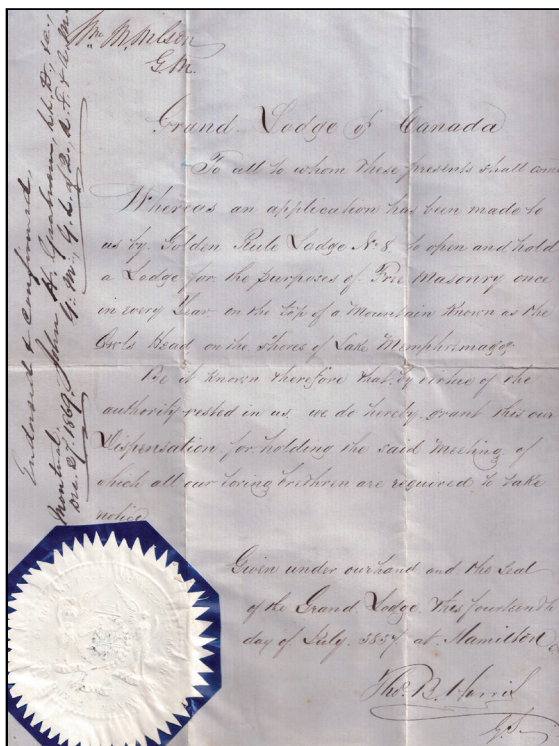 Wm M. Wilson
G.M.
Grand Lodge of Canada
To all to whom these presents shall come
Whereas an application has been made to
us by Golden Rule Lodge No 8, to open and hold
a Lodge for the purposes of Free Masonry once
in every Year on the top of a Mountain known as the
Owls Head on the shores of Lake Memphremagog
Be it known therefore that by virtue of the
authority vested in us, we do hereby grant this our
Dispensation for holding the said meeting of
which all our loving brethren are required to take
notice
Given under our hand and the seal
of the Grand Lodge this fourteenth
day of July 1857 at Hamilton
Thos. B. Harris
G.S.
Endorsed & confirmed
Montreal
Dec. 27, 1869 John H. Graham, LL.D., &c.,
G.M., G.L. of Q., A.F. & A.M.